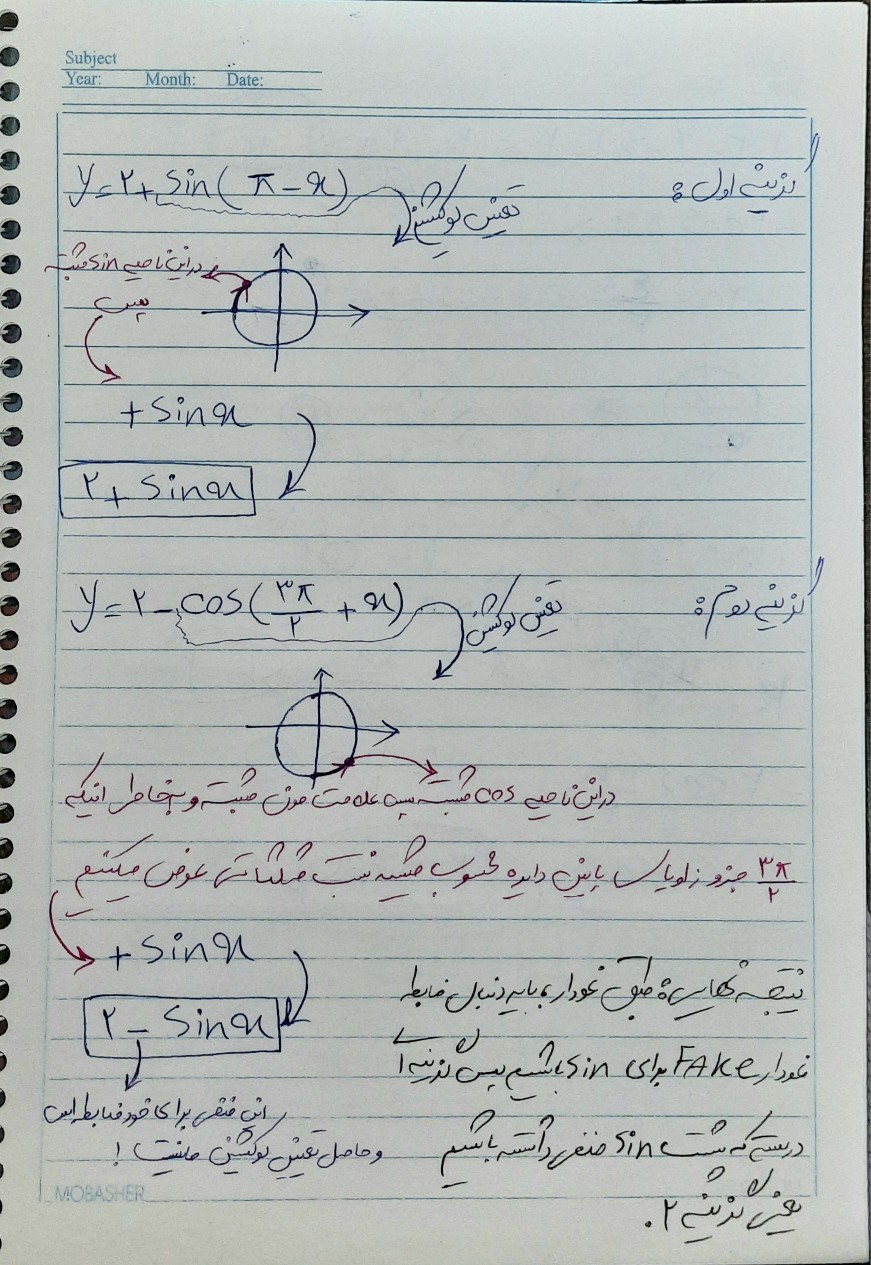 Subject
Year: Month: Date:
گزینه اول:
y = ۲ + sin(π - x)
تعیین لوکیشن
در این ناحیه sin مثبته
پس
+ sin x
۲ + sin x
گزینه دوم:
y = ۲ - cos(۳π/۲ + x)
تعیین لوکیشن
در این ناحیه cos مثبته پس علامت مون مثبته و به خاطر اینکه
۳π/۲ جزو زوایای پایین دایره محسوب میشه نسبت مثلثاتی عوض میکنیم
+ sin x
۲ - sin x
این منفی برای خود ضابطه اس
و حاصل تعیین لوکیشن ما نیست!
نتیجه نهایی: طبق نمودار، باید دنبال ضابطه
نمودار FAKE برای sin باشیم پس گزینه ای
درسته که پشت sin منفی داشته باشیم
یعنی گزینه ۲.
MOBASHER